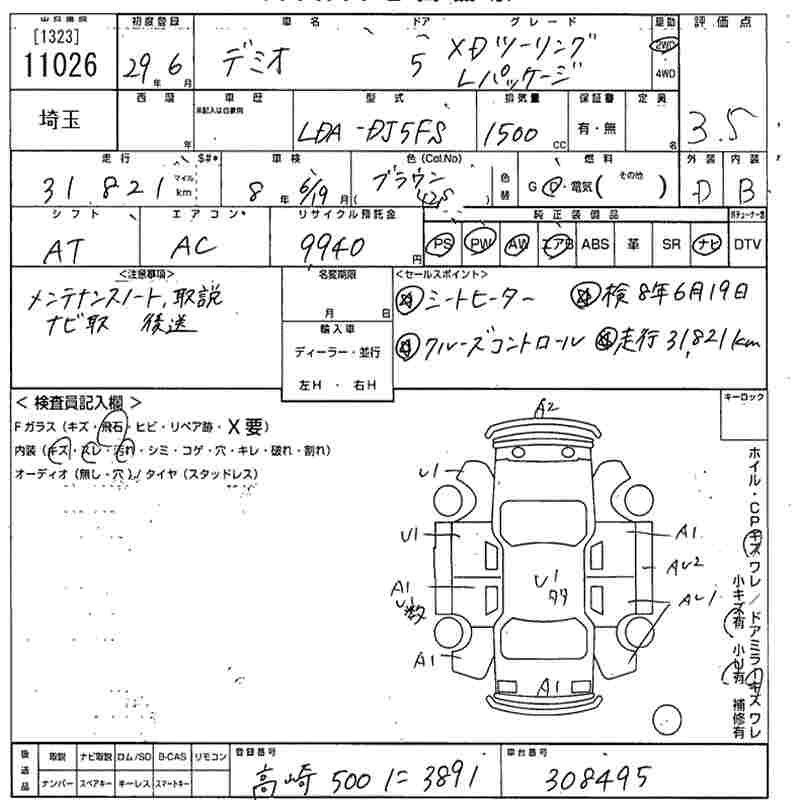 [1323]
11026
初度登録
29年 6月
車名
デミオ
ドア
5
グレード
XDツーリング
Lパッケージ
駆動
2WD
4WD
評価点
3.5
埼玉
西暦
年
車歴
未記入は自家用
型式
LDA-DJ5FS
排気量
1500 CC
保証書
有・無
定員
名
走行
31821
マイル
km
S#*
車検
8年 6/19月
色(Col.No)
ブラウン
42S
色替
燃料
G D・電気( その他 )
外装
D
内装
B
シフト
AT
エアコン
AC
リサイクル預託金
9940円
純正装備品
PS PW AW エアB ABS 革 SR ナビ DTV
<注意事項>
メンテナンスノート, 取説
ナビ取 後送
名変期限
月 日
輸入車
ディーラー・並行
左H ・ 右H
<セールスポイント>
シートヒーター
検 8年6月19日
クルーズコントロール
走行 31,821km
< 検査員記入欄 >
Fガラス (キズ・飛石・ヒビ・リペア跡・X要)
内装 (キズ・スレ・汚れ・シミ・コゲ・穴・キレ・破れ・割れ)
オーディオ (無し・穴)/タイヤ (スタッドレス)
キーロック
A2
U1
U1
A1
A1
AU2
AU1
A1
U1
A1
ホイル・CPキズワレ/ドアミラーキズワレ
小キズ有 小U有 補修有
後送品
取説 ナビ取説 ロム/SD B-CAS リモコン
ナンバー スペアキー キーレス スマートキー
登録番号
高崎 500 に 3891
車台番号
308495